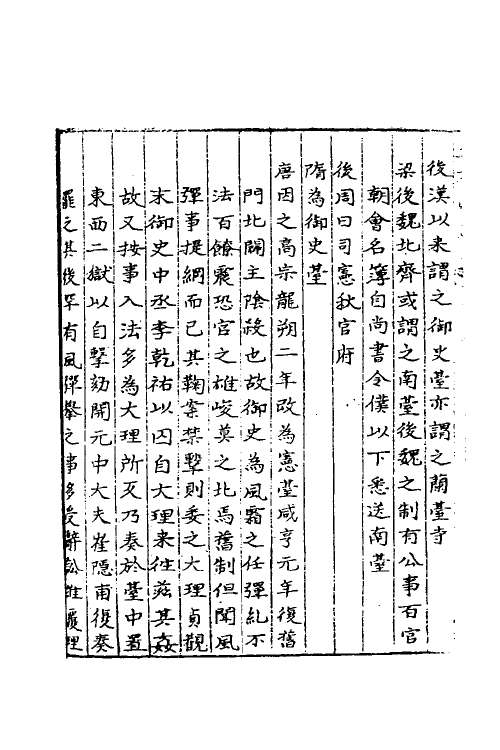 後漢以来謂之御史臺亦謂之蘭臺寺
梁後魏北齊或謂之南臺後魏之制有公事百官
朝會名簿自尚書令僕以下悉送南臺
後周曰司憲秋官府
隋為御史臺
唐因之高宗龍朔二年改為憲臺咸亨元年復舊
門北闢主陰殺也故御史為風霜之任彈糺不
法百僚震恐官之雄峻莫之比焉舊制但聞風
彈事提綱而已其鞠案禁繫則委之大理貞觀
末御史中丞李乾祐以囚自大理来往滋其姦
故又按事入法多為大理所反乃奏於臺中置
東西二獄以自繫劾開元中大夫崔隱甫復奏
罷之其後罕有風彈舉之事多受辭訟推覆理